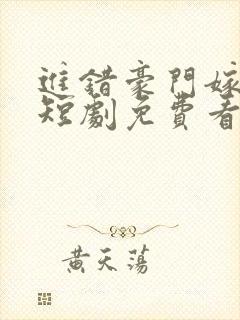 進錯豪門嫁
短劇免費看
黃天蕩